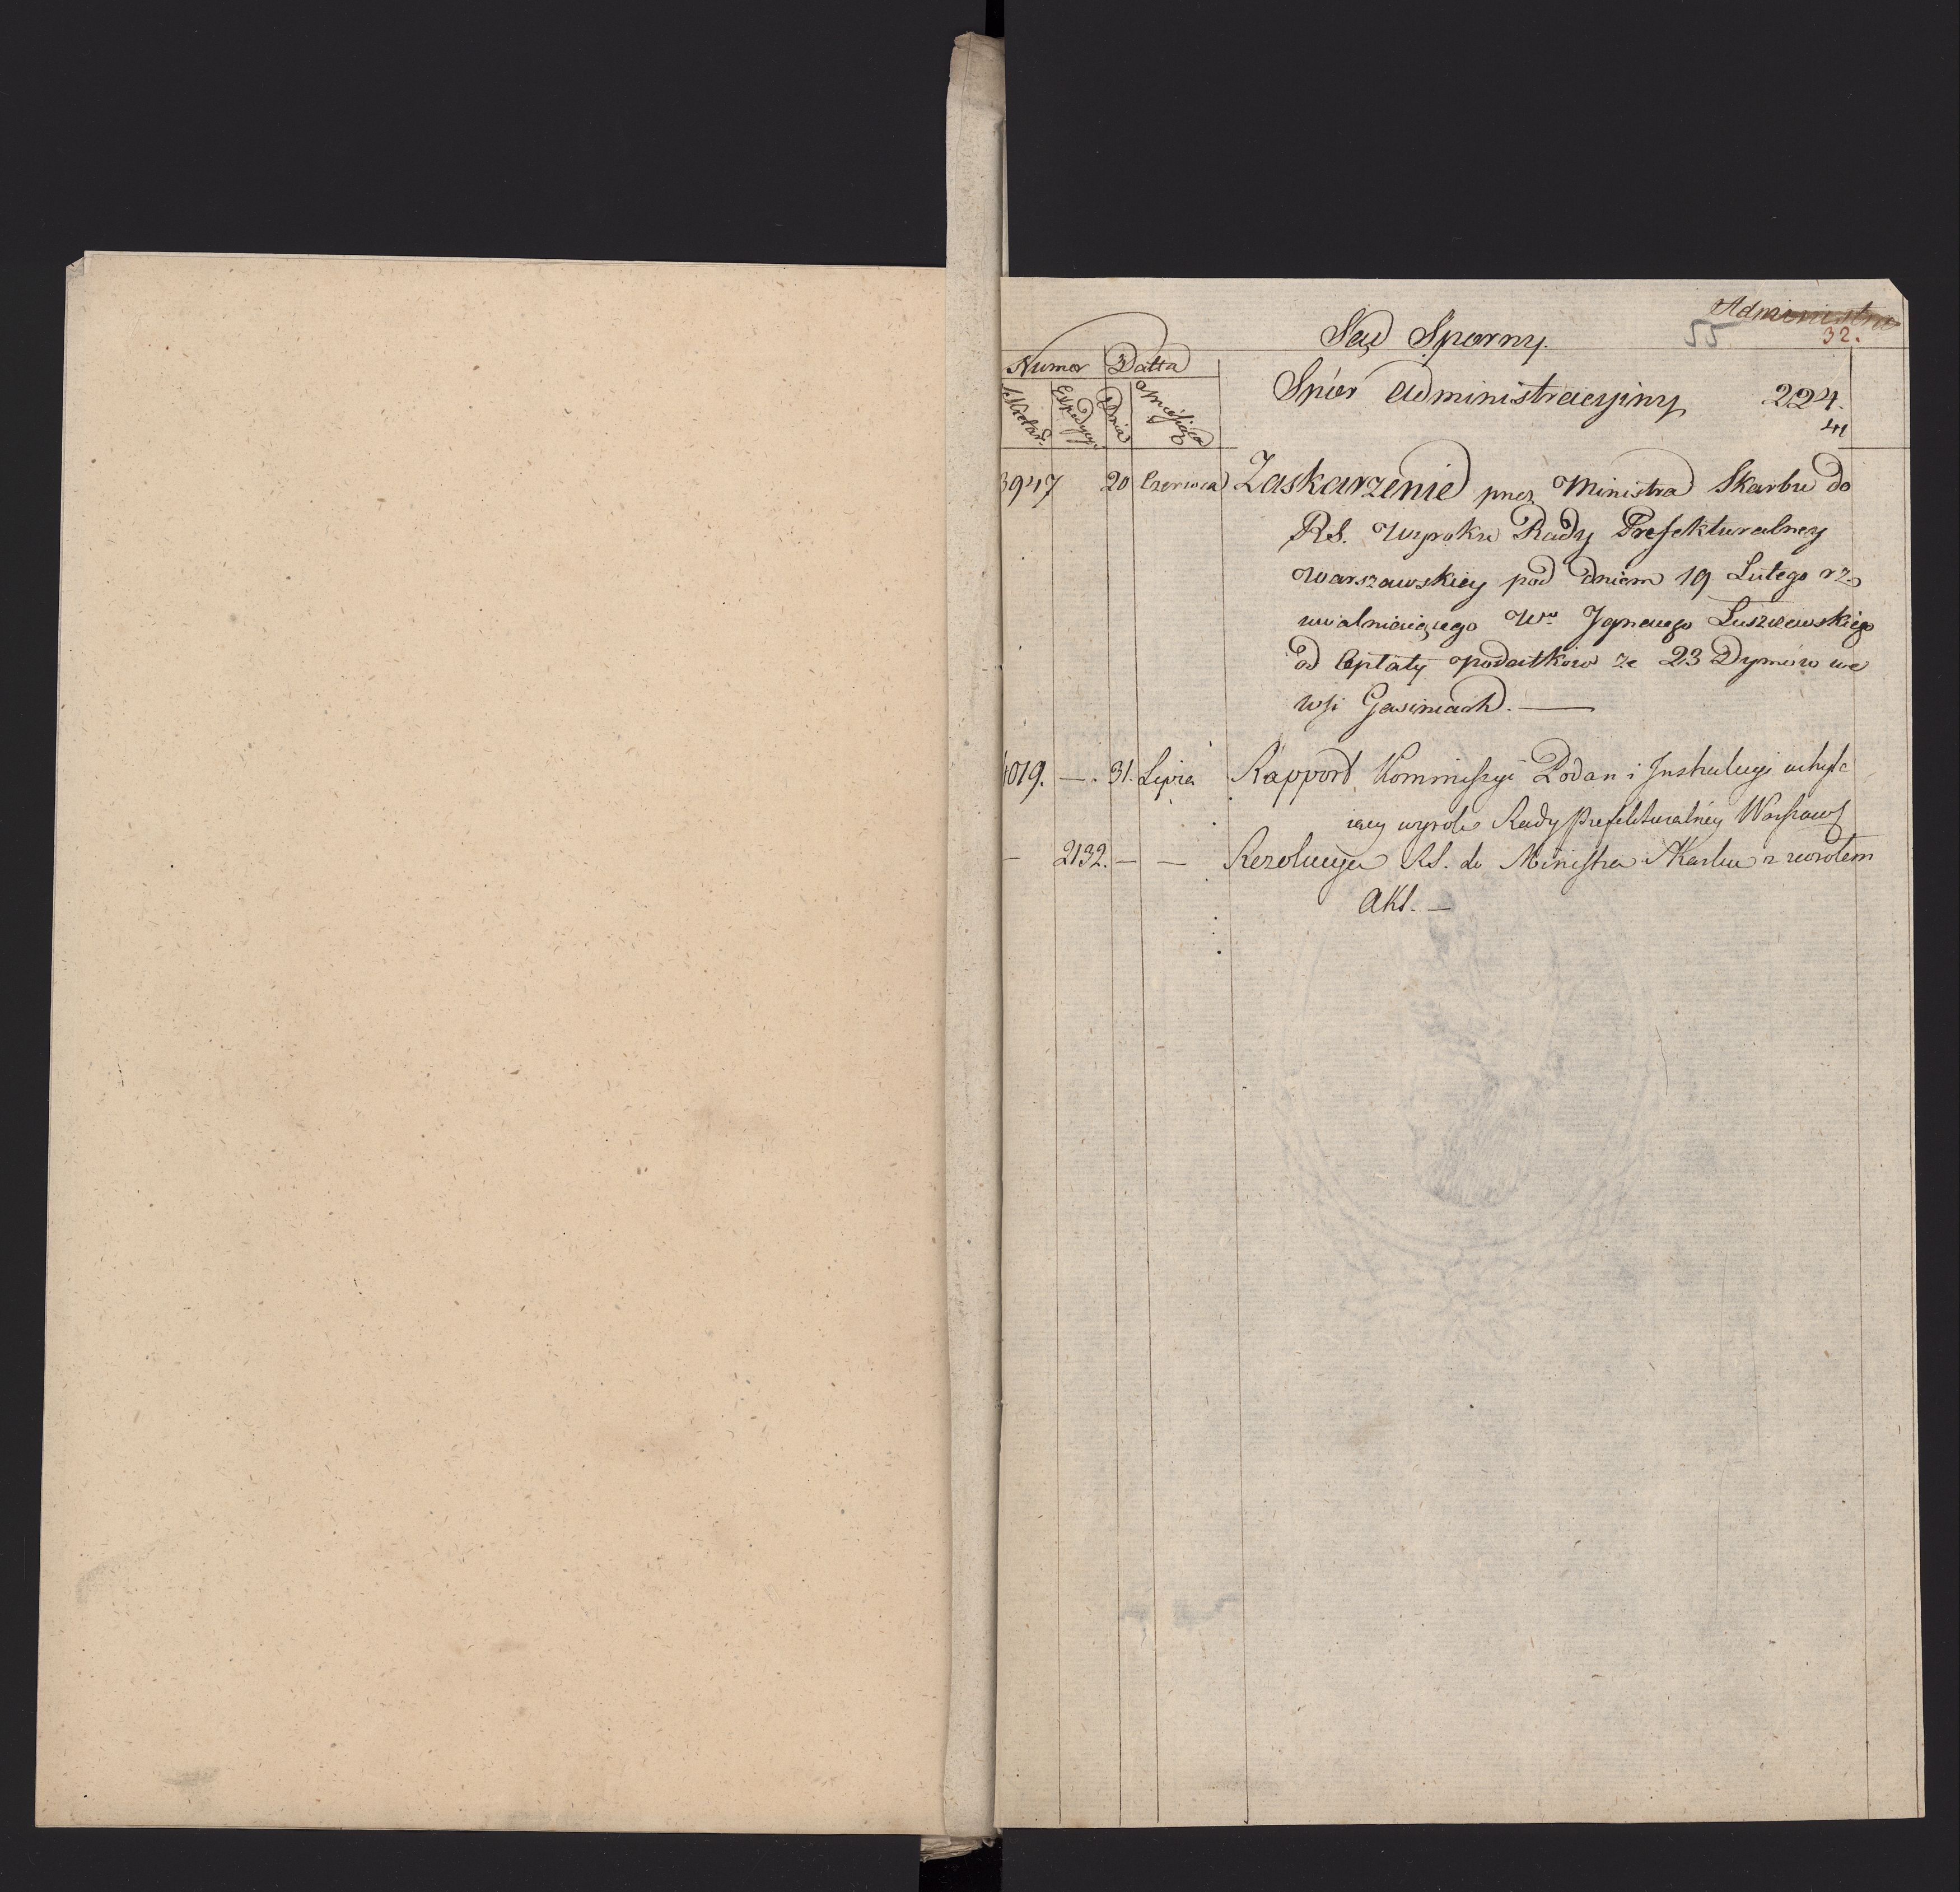 Administra
Sąd Sporny.
55
32.
Numer Datta
Expedycyi Dnia Miesiąca
Spór Administracyiny 224.
41
3947 20 Czerwca Zaskarzenie przez Ministra Skarbu do
RS. Wyroku Rady Prefekturalney
Warszawskiey pod dniem 19 Lutego rz
uwalniaiącego Wo Ignacego
od Opłaty podatków ze 23 Dymów we
wsi
4019. — . 31. Lipca Rapport Kommissyi Podań i Instrukcyi uchyla
iący wyrok Rady Prefekturalney Warszaws
— 2132. — — Rezolucya RS. do Ministra Skarbu z zwrotem
Akt. —